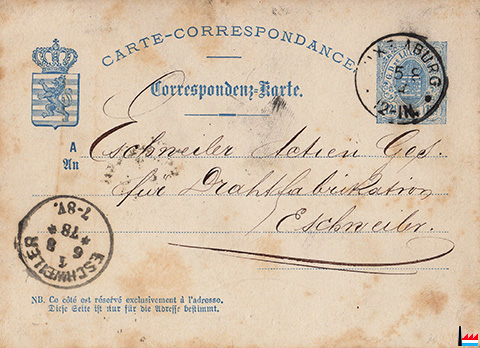 CARTE-CORRESPONDANCE
Correspondenz-Karte.
LUXEMBURG
12-1N.
A
An
Eschweiler Actien Ges.
für Drahtfabrikation
Eschweiler.
ESCHWEILER
1 8
6
* 78 *
7-8V.
NB. Ce côté est réservé exclusivement à l'adresse.
Diese Seite ist nur für die Adresse bestimmt.